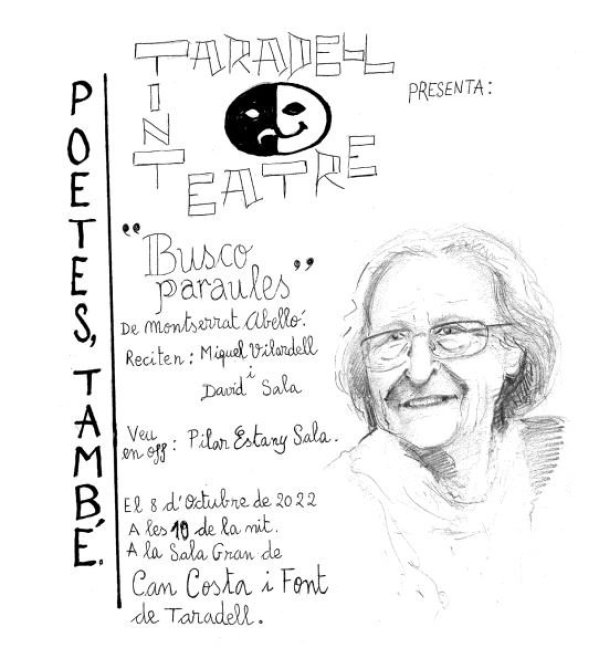 TARADELL
TINT
TEATRE
PRESENTA:
POETES, TAMBÉ.
"Busco
paraules"
De Montserrat Abelló.
Reciten: Miquel Vilardell
i
David Sala
Veu
en off: Pilar Estany Sala.
El 8 d'Octubre de 2022
A les 10 de la nit.
A la Sala Gran de
Can Costa i Font
de Taradell.